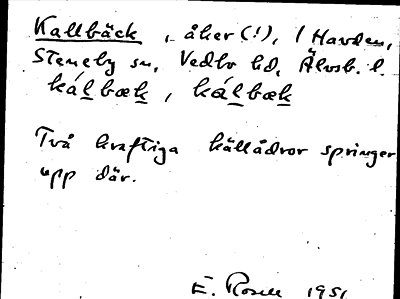 Kallbäck, åker (!), i Harden,
Steneby sn, Vedbo hd, Älvsb. l.
kálbæk, kálbæk
Två kraftiga källådror springer
upp där.
E. Rosell 1951